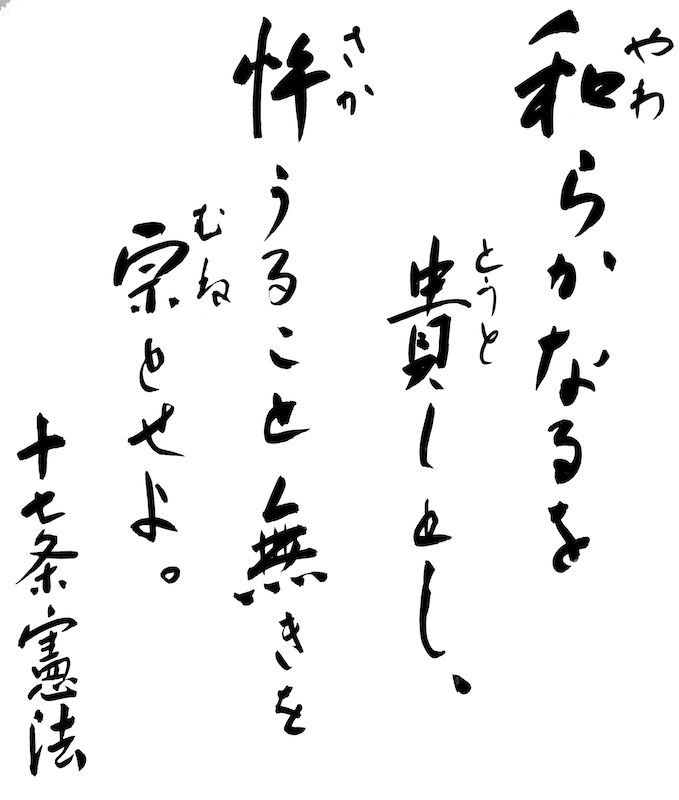 和らかなるを
やわ
貴しとし、
とうと
忤うること無きを
さか
宗とせよ。
むね
十七条憲法